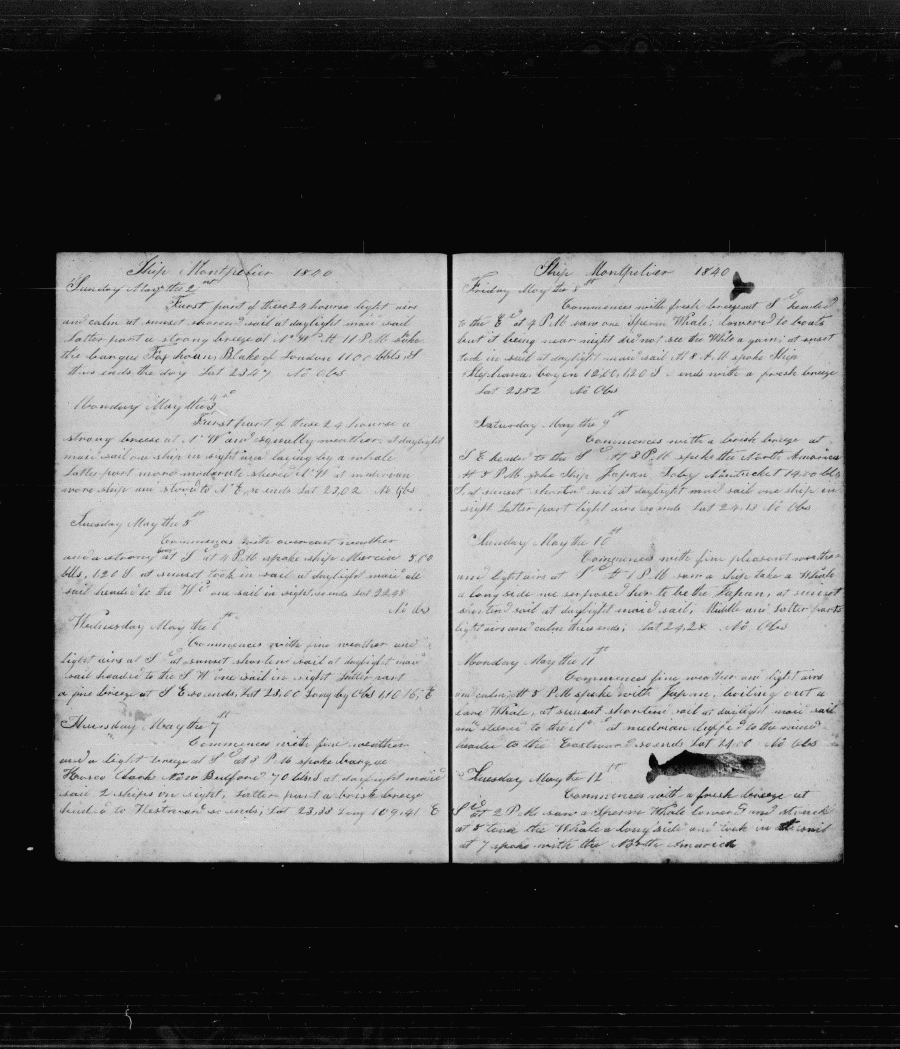 Ship Montpelier 1840
Sunday May the 2nd
First part of these 24 hours light airs
and calm at sunset shortend sail at daylight maid sail
Latter part a strong breeze at N W At 11 P.M. spoke
the barque Fox houn, Blake of London 1100 bbls, S
thus ends the day Lat 23.47 No Obs
Monday May the
First part of these 24 hours a
strong breeze at N W and squally weather, at daylight
maid sail one ship in sight and laying by a whale
Latter part more moderate steered N W at meridian
wore ship and stood to N E, so ends Lat 23,02 No Obs
Tuesday May the 5th
Commences with overcast weather
and a strong at S at 4 P.M spoke ship Mercia 800
bbls, 120 S at sunset took in sail at daylight maid all
sail headed to the Wd one sail in sight so ends Lat 22.48
No obs
Wednesday May the 6th
Commences with fine weather and
light airs at S at sunset shorten sail at daylight maid
sail headed to the S W one sail in sight Latter part
a fine breeze at S E so ends, Lat 23.00 Long by Obs 110 16, E
Thursday May the 7th
Commences with fine weather
and a light breeze at S at 3 P M spoke barque
Clark New Bedford 70 bbls at daylight maid
sail 2 ships in sight, Latter part a brisk breeze
headed to Westward so ends, Lat 23.33 Long 109,41 E
Ship Montpelier 1840
Friday May the 8th
Commences with fresh breeze at S headed
to the E at 4 P M saw one Sperm Whale; lowered to boats
but it being near night did not see the Whale again; at sunset
took in sail at daylight maid sail At 8 A M spoke Ship
Stephana, Cogin 1200, 120 S ends with a fresh breeze
Lat 23.82 No Obs
Saturday May the 9th
Commences with a brisk breeze at
S E headed to the S At 3 P.M spoke the North America
At 8 P.M. spoke Ship Japan Toby Nantucket 1400 bbls
S at sunset shorten sail at daylight maid sail one ship in
sight Latter part light airs so ends Lat 24.13 No Obs
Sunday May the 10th
Commences with fine pleasant weather
and light airs at S at 1 P M saw a ship take a Whale
a long side we surposed her to be the Japan, at sunset
shortend sail at daylight maid sail, Middle and latter parts
light airs and calm thus ends; Lat 24,28 No Obs
Monday May the 11th
Commences fine weather and light airs
and calm, At 3 P.M spoke with Japan, boiling out a
Whale, at sunset shortend sail at daylight maid sail
and steered to the at meridian luffed to the wind
headed to the Eastward so ends Lat 24.00 No Obs
Tuesday May the 12th
Commences with a fresh breeze at
S E at 2 P.M saw a Sperm Whale lowered and struck
at 5 took the Whale a long side and took in sail
at 7 spoke with the North America